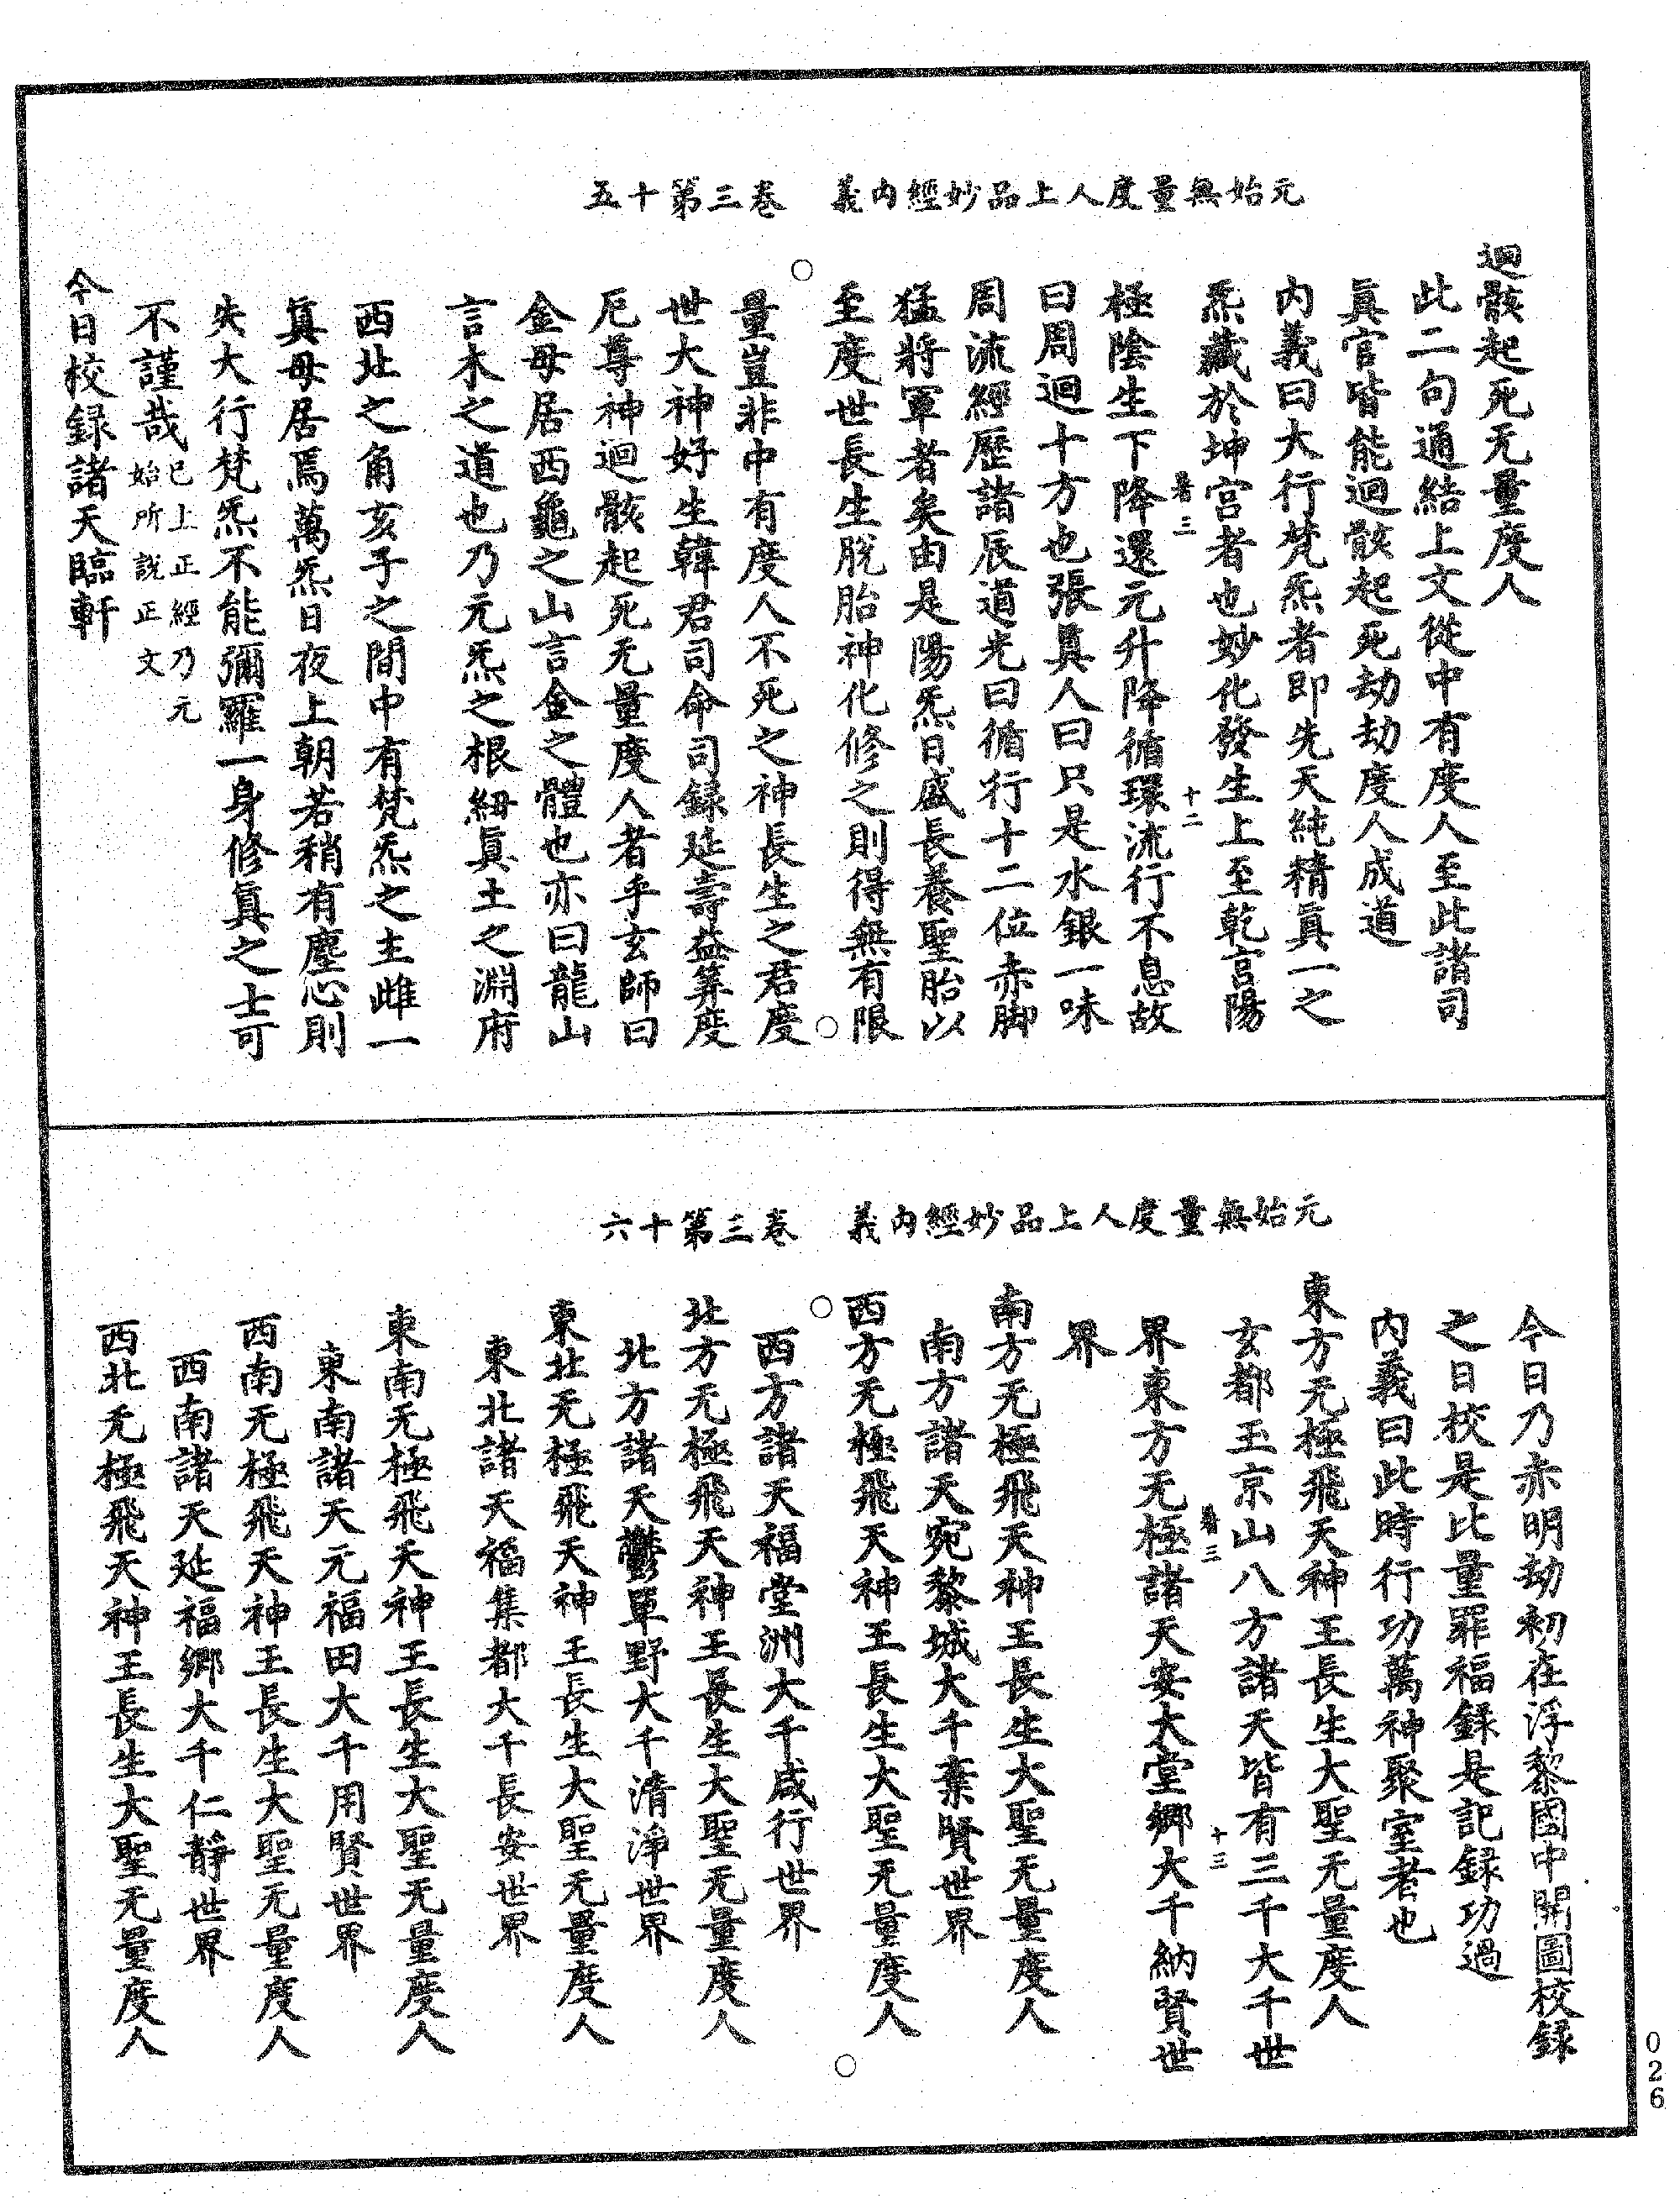 元始無量度人上品妙經內義　卷三第十五
迴骸起死无量度人
此二句通結上文從中有度人至此諸司
真官皆能迴骸起死劫劫度人成道
內義曰大行梵炁者即先天純精真一之
炁藏於坤宮者也妙化發生上至乾宮陽
卷三　十二
極陰生下降還元升降循環流行不息故
曰周迴十方也張真人曰只是水銀一味
周流經歷諸辰道光曰循行十二位赤脚
猛將軍者矣由是陽炁日盛長養聖胎以
至度世長生脫胎神化修之則得無有限
量豈非中有度人不死之神長生之君度
世大神好生韓君司命司録延壽益筭度
厄尊神迴骸起死无量度人者乎玄師曰
金母居西龜之山言金之體也亦曰龍山
言木之道也乃元炁之根紐真土之淵府
西北之角亥子之間中有梵炁之主雌一
真母居焉萬炁日夜上朝若稍有塵心則
失大行梵炁不能彌羅一身修真之士可
不謹哉已上正經乃元始所說正文
今日校録諸天臨軒
元始無量度人上品妙經內義　卷三第十六
今日乃赤明劫初在浮黎國中開圖校録
之日校是比量罪福録是記録功過
內義曰此時行功萬神聚室者也
東方无極飛天神王長生大聖无量度人
玄都玉京山八方諸天皆有三千大千世
卷三　十三
界東方无極諸天安大堂鄉大千納賢世
界
南方无極飛天神王長生大聖无量度人
南方諸天宛黎城大千棄賢世界
西方无極飛天神王長生大聖无量度人
西方諸天福堂洲大千咸行世界
北方无極飛天神王長生大聖无量度人
北方諸天鬱單野大千清淨世界
東北无極飛天神王長生大聖无量度人
東北諸天福集都大千長安世界
東南无極飛天神王長生大聖无量度人
東南諸天元福田大千用賢世界
西南无極飛天神王長生大聖无量度人
西南諸天延福鄉大千仁靜世界
西北无極飛天神王長生大聖无量度人
026